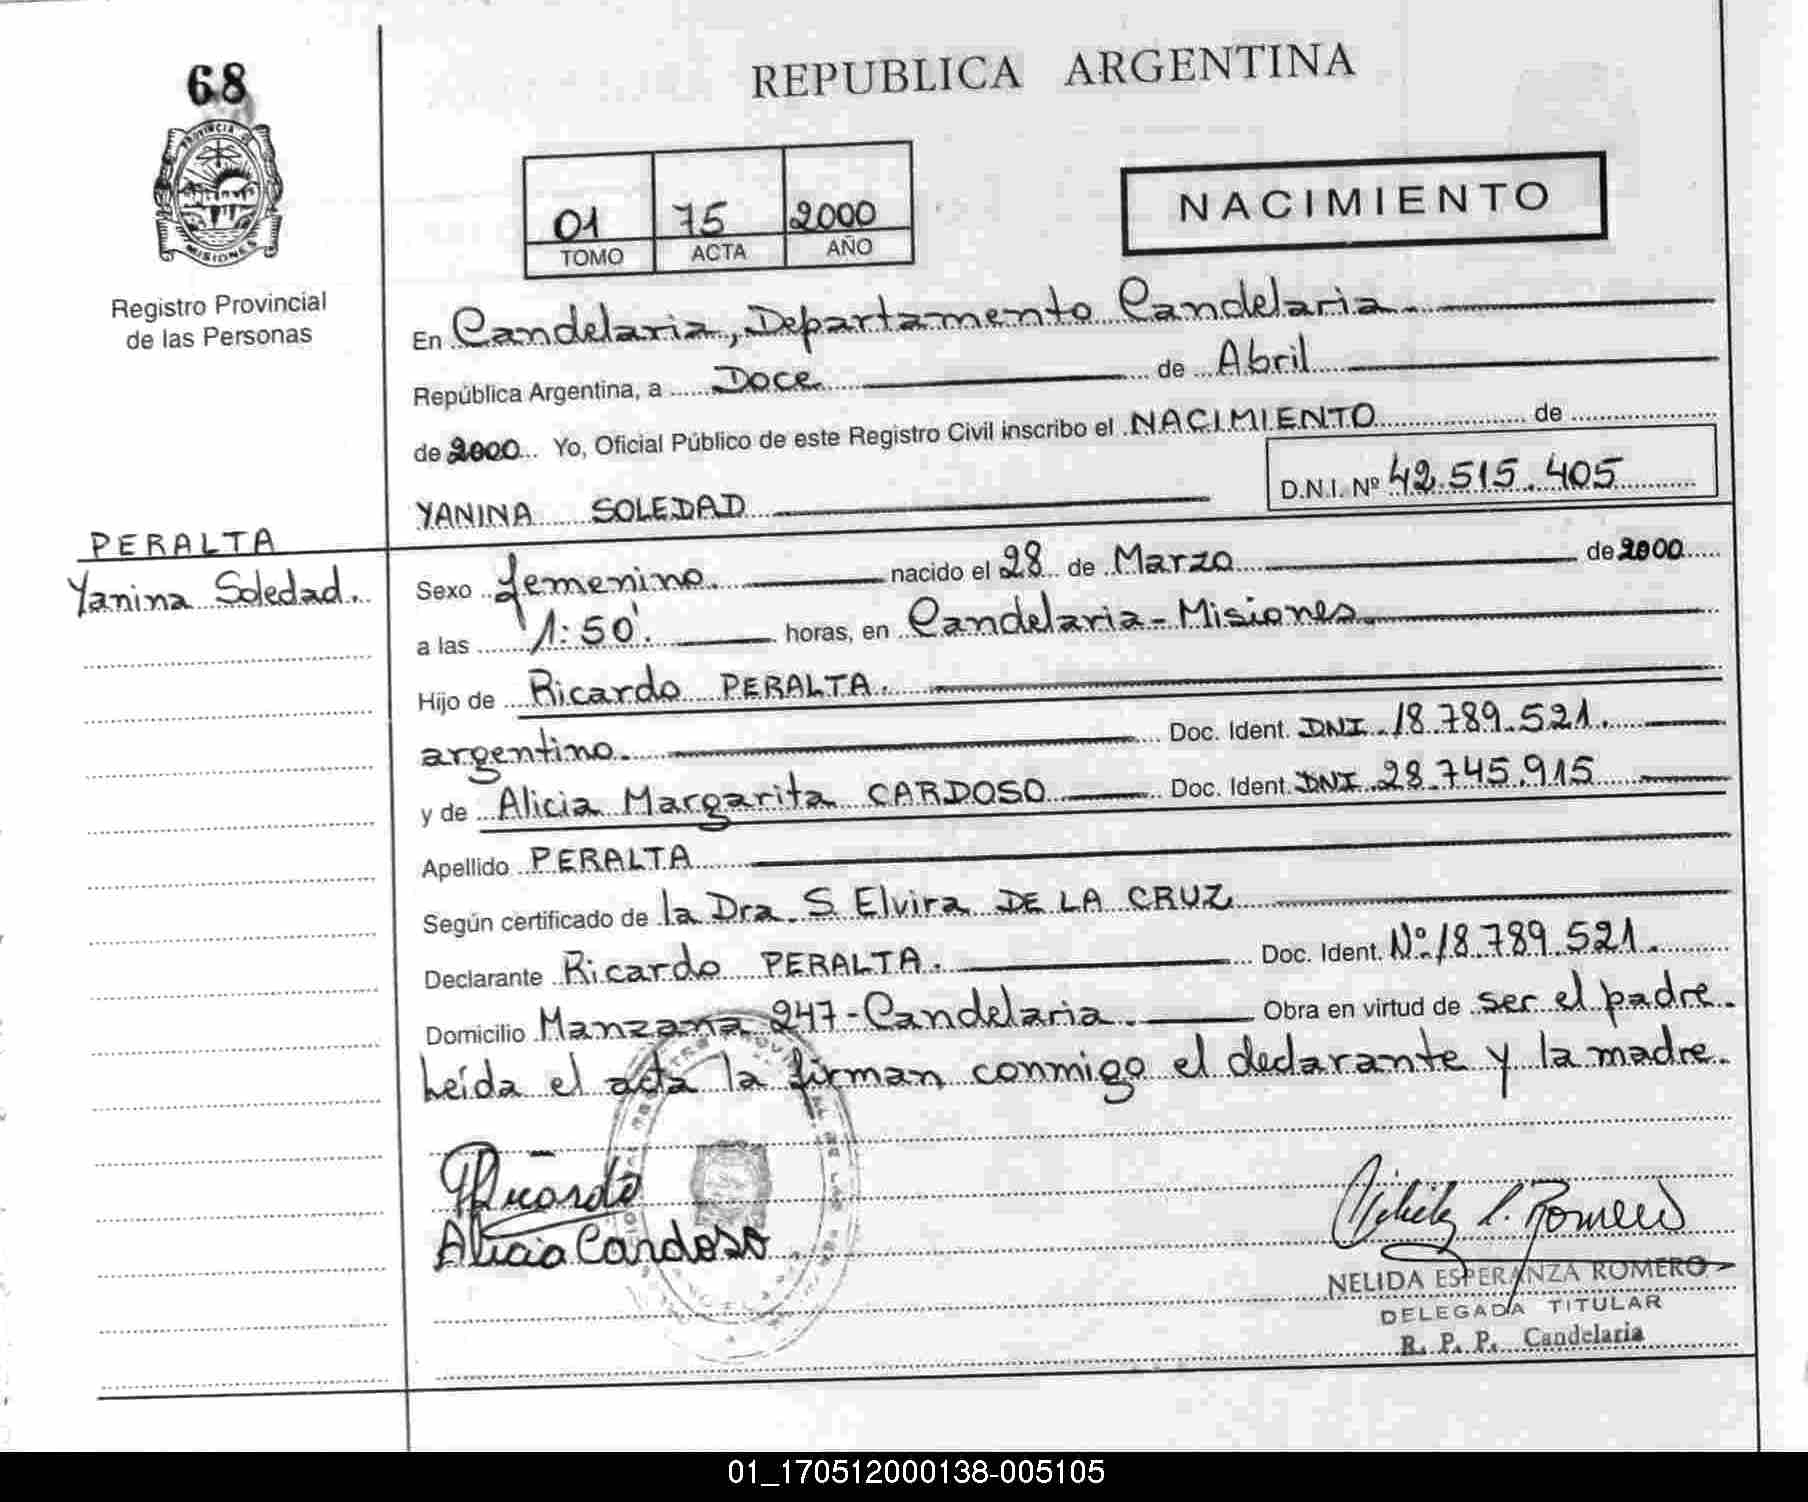 68
REPUBLICA ARGENTINA
PROVINCIA DE
MISIONES
Registro Provincial
de las Personas
01 75 2000
TOMO ACTA AÑO
NACIMIENTO
En Candelaria, Departamento Candelaria.
República Argentina, a Doce de Abril
de 2000 Yo, Oficial Público de este Registro Civil inscribo el NACIMIENTO de
YANINA SOLEDAD D.N.I. Nº 42.515.405
PERALTA
Yanina Soledad.
Sexo femenino. nacido el 28 de Marzo de 2000
a las 1:50'. horas, en Candelaria - Misiones.
Hijo de Ricardo PERALTA.
argentino. Doc. Ident. DNI 18.789.521.
y de Alicia Margarita CARDOSO Doc. Ident. DNI 28.745.915
Apellido PERALTA
Según certificado de la Dra. S Elvira DE LA CRUZ
Declarante Ricardo PERALTA. Doc. Ident. Nº 18.789.521.
Domicilio Manzana 247 - Candelaria. Obra en virtud de ser el padre.
Leída el acta la firman conmigo el declarante y la madre.
Ricardo
Alicia Cardoso
Romero
NELIDA ESPERANZA ROMERO
DELEGADA TITULAR
R. P. P. Candelaria
01_170512000138-005105